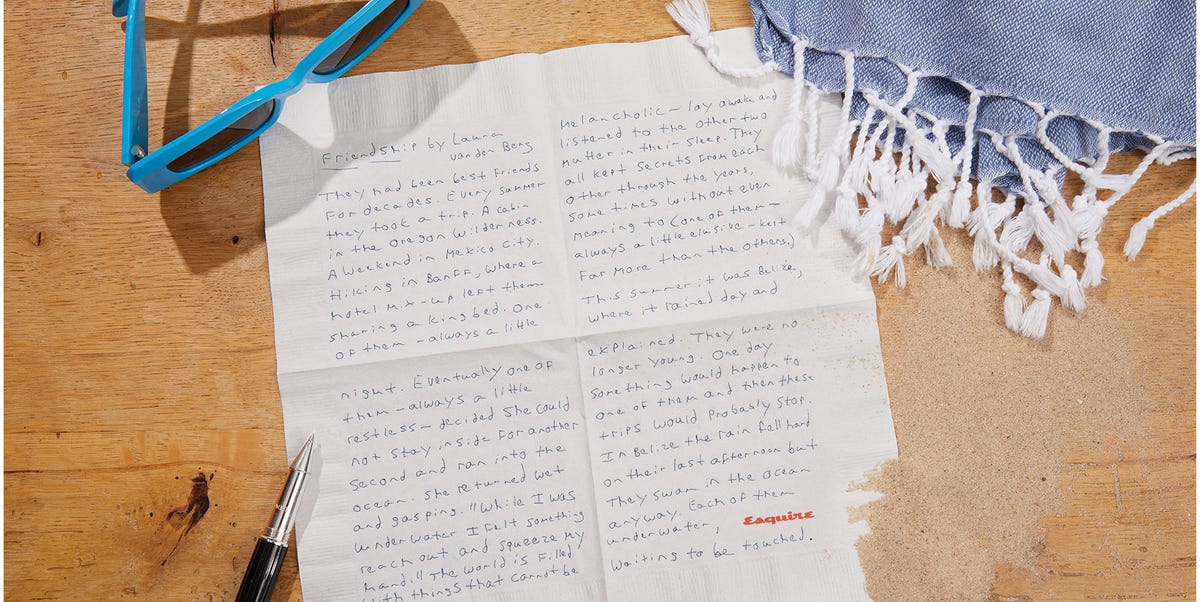 Friendship by Laura
van den Berg
They had been best friends
for decades. Every summer
they took a trip. A cabin
in the Oregon Wilderness.
A weekend in Mexico City.
Hiking in Banff, where a
hotel mix-up left them
sharing a king bed. One
of them - always a little
melancholic - lay awake and
listened to the other two
mutter in their sleep. They
all kept secrets from each
other through the years,
some times without even
meaning to (one of them -
always a little elusive - kept
far more than the others.)
This summer it was Belize,
where it rained day and
night. Eventually one of
them - always a little
restless - decided she could
not stay inside for another
second and ran into the
ocean. She returned wet
and gasping. "While I was
underwater I felt something
reach out and squeeze my
hand." The world is filled
with things that cannot be
explained. They were no
longer young. One day
something would happen to
one of them and then these
trips would probably stop.
In Belize the rain fell hard
on their last afternoon but
They swam in the ocean
anyway. Each of them
underwater,
Esquire
waiting to be touched.